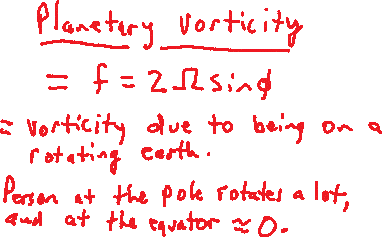 Planetary Vorticity
= f = 2 Ω sin φ
= Vorticity due to being on a
rotating earth.
Person at the pole rotates a lot,
and at the equator ≈ 0.